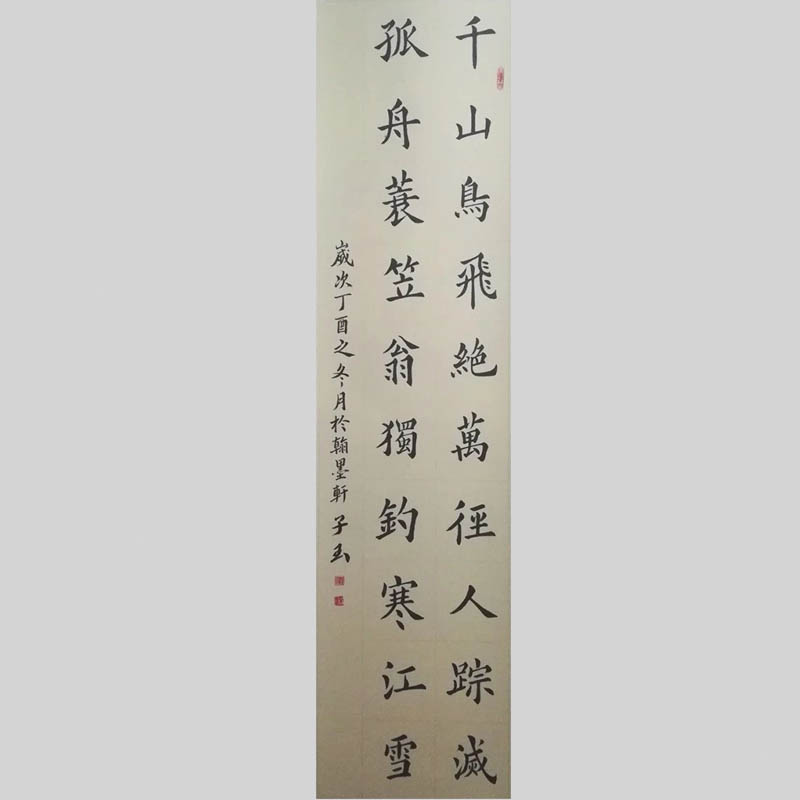 千山鳥飛絕萬徑人踪滅
孤舟蓑笠翁獨釣寒江雪
歲次丁酉之冬月於翰墨軒子玉